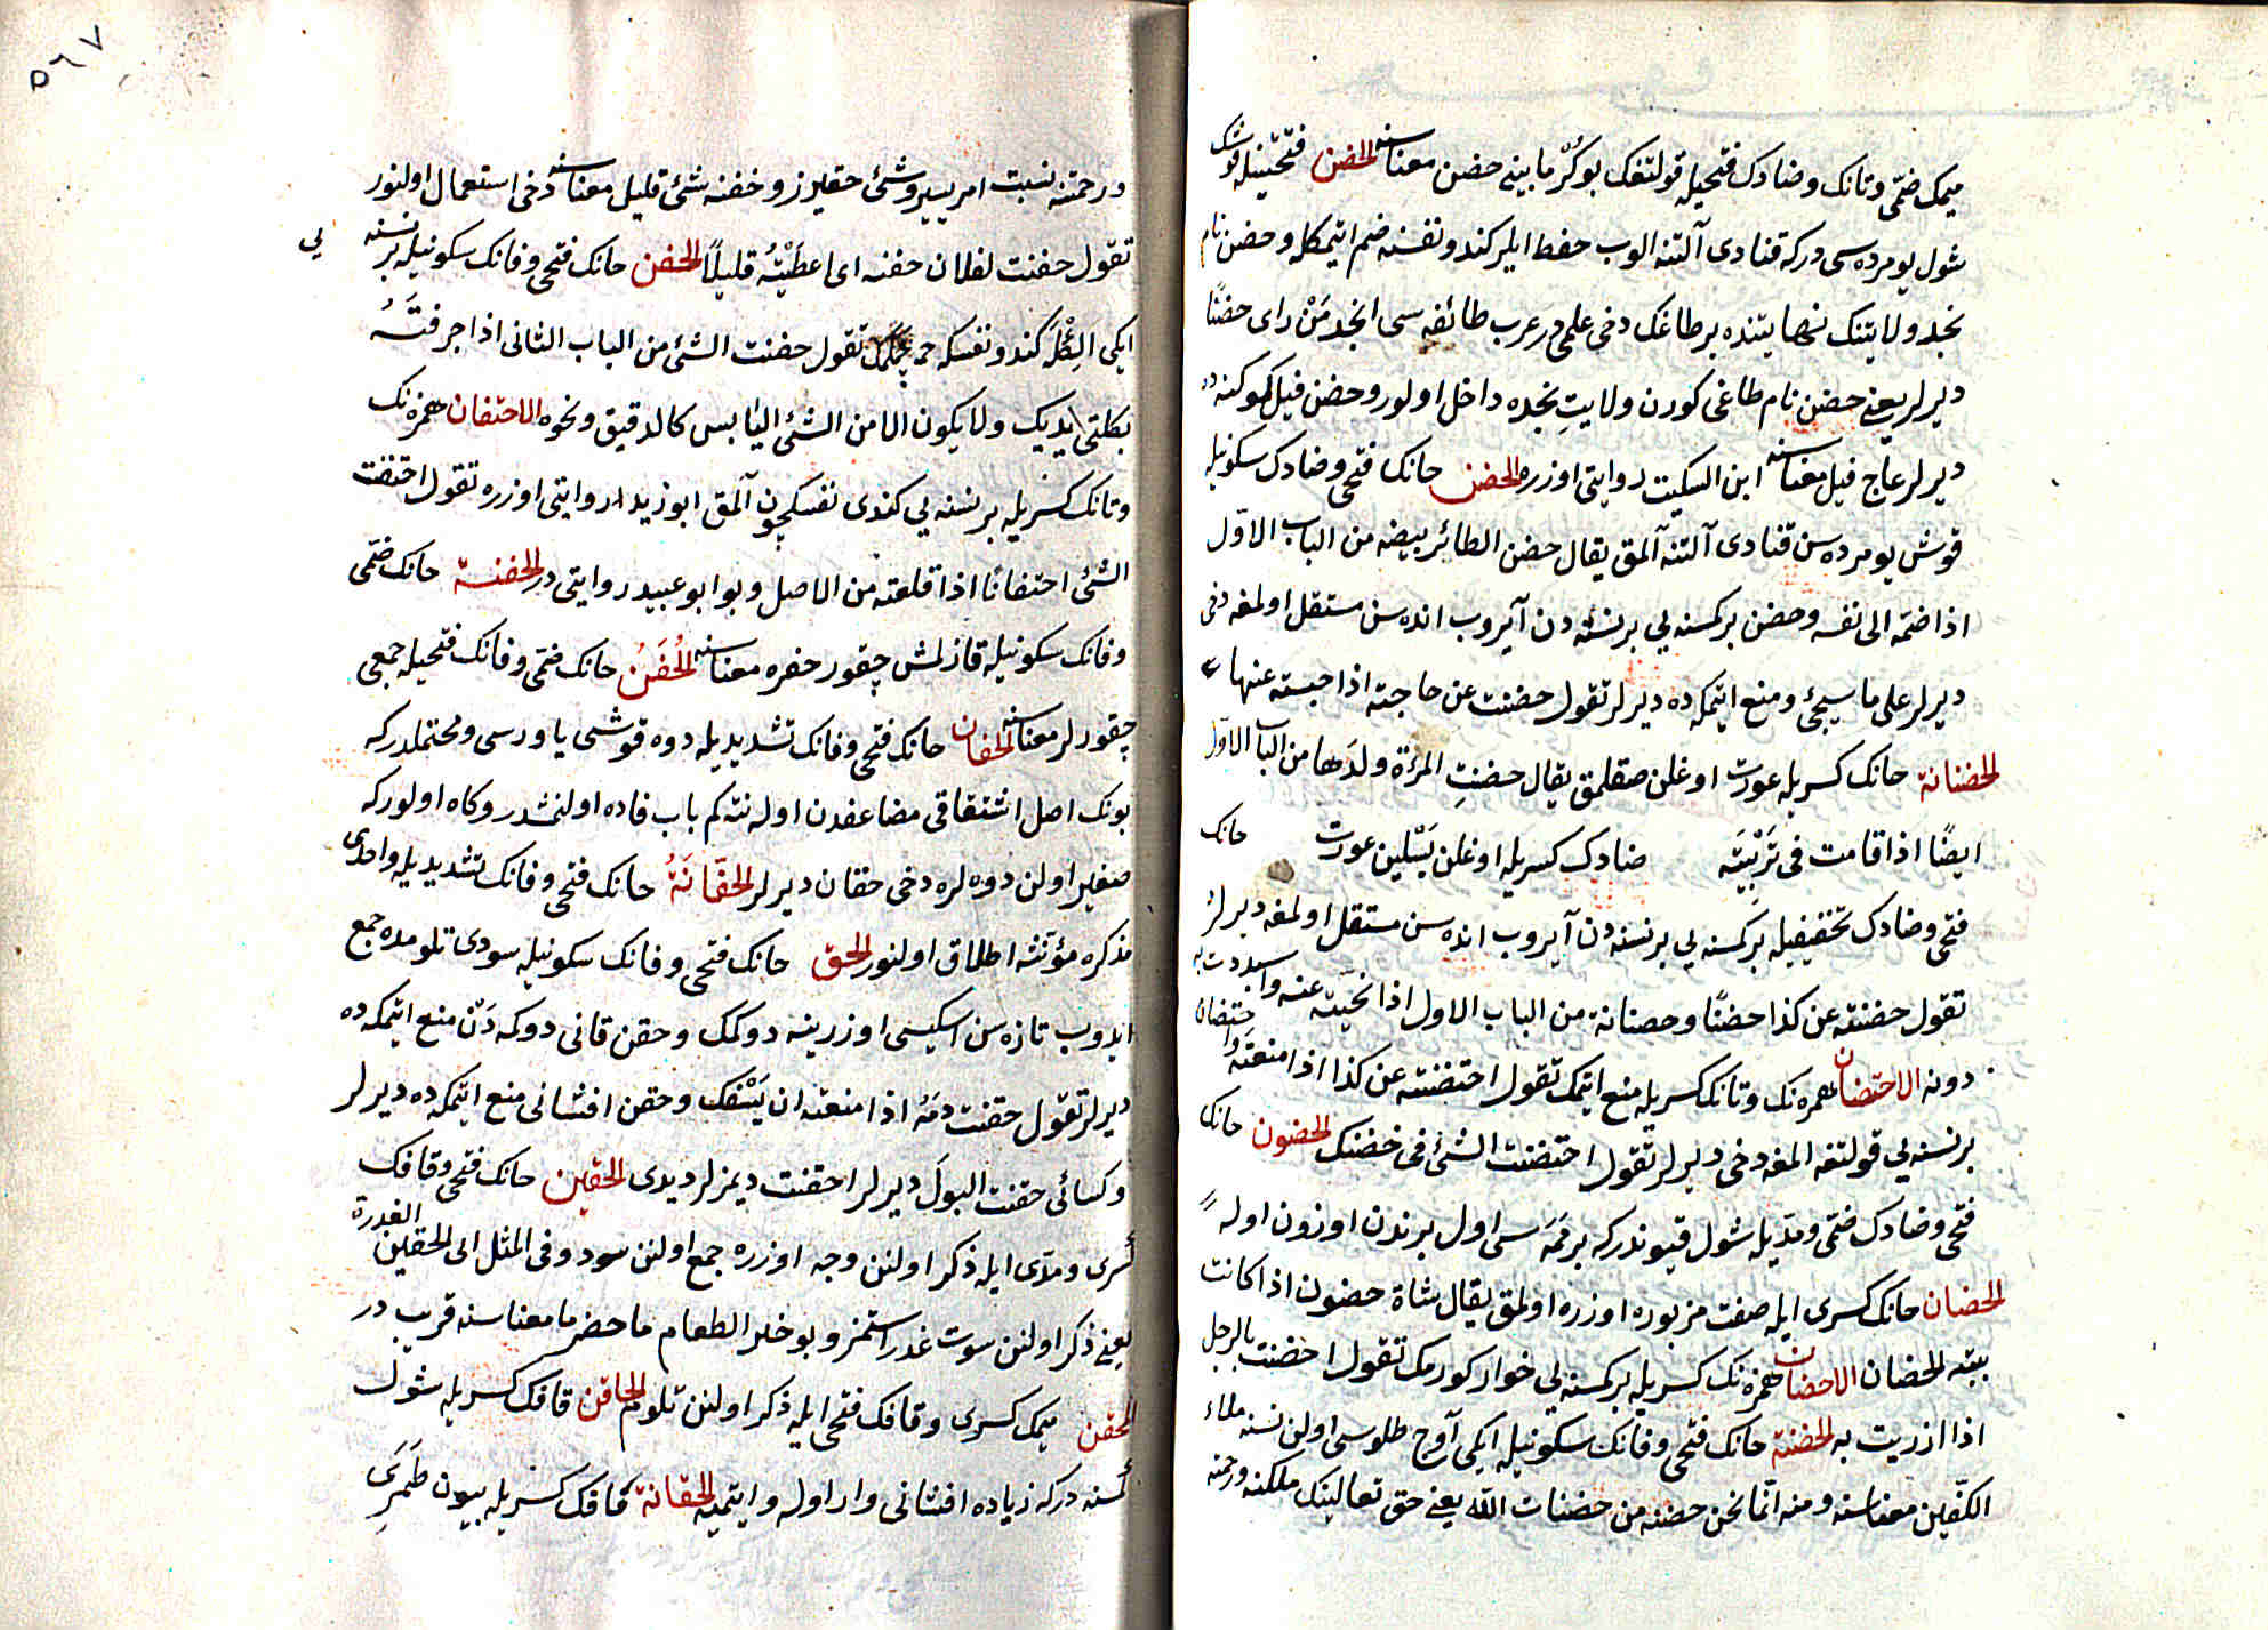 ميمك ضمّى وتانك وضادك فتحيله قولتغك بوكرّ مابينى حضن معناسنه الحضن فتحتينله قوشك
شول يومرده سى دركه قنادى آلتنه الوب حفظ ايلر كندو نفسنه ضم ايتمكله وحضن نام
نجد ولايتنك نهايتنده بر طاغك دخى علمى در عرب طائفه سى انجد مَنْ راى حضنًا
ديرلر يعنى حضن نام طاغى كورن ولايت نجده داخل اولور وحضن فيل كموكنه
ديرلر عاج فيل معناسنه ابن السكيت روايتى اوزره الحضن حانك فتحى وضادك سكونيله
قوش يومرده سن قنادى آلتنه آلمق يقال حضن الطائر بيضه من الباب الاوّل
اذا ضمّه الى نفسه وحضن بر كمسنه يى بر نسنه دن آيروب انده سن مستقل اولمغه دخى
ديرلر على ما سيجئ ومنع ايتمكه ده ديرلر تقول حضنت عن حاجته اذا حبسته عنها
الحضانة حانك كسريله عورت اوغلن صقلمق يقال حضنتِ المرءة ولدَها من الباب الاوّل
ايضًا اذا قامت فى تَرْبِيَتِه ضادك كسريله اوغلن بَسْلين عورت حانك
فتحى وضادك تخفيفيله بر كمسنه يى بر نسنه دن آيروب انده سن مستقل اولمغه ديرلر
تقول حضنته عن كذا حضنًا وحضانة من الباب الاول اذا نحّيته عنه واستبددت به
دونه الاحتضان همزه نك وتانك كسريله منع ايتمك تقول احتضنته عن كذا اذا منعته واحتضان
بر نسنه يى قولتغه المغه دخى ديرلر تقول احتضنت الشئ فى حضنك الحضون حانك
فتحى وضادك ضمّى ومدّيله شول قيوندركه بر مَمَه سى اول برندن اوزون اوله
الحضان حانك كسرى ايله صفت مزبوره اوزره اولمق يقال شاة حضون اذا كانت
بيّنه الحضان الاحضان همزه نك كسريله بر كمسنه يى خوار كورمك تقول احضنت بالرجل
اذا ازريت به الحفنة حانك فتحى وفانك سكونيله ايكى آوج طلوسى اولن نسنه ملاء
الكفّين معناسنه ومنه انّما نحن حفنة من حفنات الله يعنى حق تعالينك ملكنه ورحمته
٥٦٧
ورحمتنه نسبت امر يسير وشئ حقيرز وحفنه شئ قليل معناسنه دخى استعمال اولنور
تقول حفنت لفلان حفنه اى اعطَيْتُه قليلاً الحفن حانك فتحى وفانك سكونيله بر نسنه يى
ايكى الِكْلَه كندو نفسكه چكمك تقول حفنت الشئ من الباب الثانى اذا جرفتَهُ
بكلتى يديك ولا يكون الا من الشئ اليابس كالدقيق ونحوه الاحتفان همزه نك
وتانك كسريله بر نسنه يى كندى نفسكچون آلمق ابو زيد روايتى اوزره تقول احتفنت
الشئ احتفانًا اذا قلعته من الاصل وبو ابو عبيد روايتى در الحفنة حانك ضمّى
وفانك سكونيله قازلمش چقور حفره معناسنه الحُفَنُ حانك ضمّى وفانك فتحيله جمعى
چقورلر معناسنه الحفان حانك فتحى وفانك تشديديله دوه قوشى ياورسى ومحتملدركه
بونك اصل اشتقاقى مضاعفدن اوله نته كم باب فاده اولنمشدر وكاه اولوركه
صغير اولن دوه لره دخى حفان ديرلر الحفّانَةُ حانك فتحى وفانك تشديديله واحدى
مذكره مؤنثه اطلاق اولنور الحقن حانك فتحى وفانك سكونيله سودى تلومده جمع
ايدوب تازه سن اسكيسى اوزرينه دوكمك وحقن قانى دوكمه دَن منع ايتمكه ده
ديرلر تقول حقنت دمَهُ اذا منعته ان يَسْفك وحقن افشانى منع ايتمكه ده ديرلر
وكسائى حقنت البولَ ديرلر احقنت ديمزلر ديدى الحقين حانك فتحى وقافك
كسرى ومدّى ايله ذكر اولنن وجه اوزره جمع اولنن سود وفى المثل ابى الحقين العذرة
يعنى ذكر اولنن سوت عذر استمز وبو خلر الطعام ما حضر ما معناسنه قريب در
المحقن ميمك كسرى وقافك فتحى ايله ذكر اولنن تلوم الحاقن قافك كسريله شول
كمسنه دركه زياده افشانى وار اوله وايتميه الحقانة قافك كسريله بيون طَمَرى